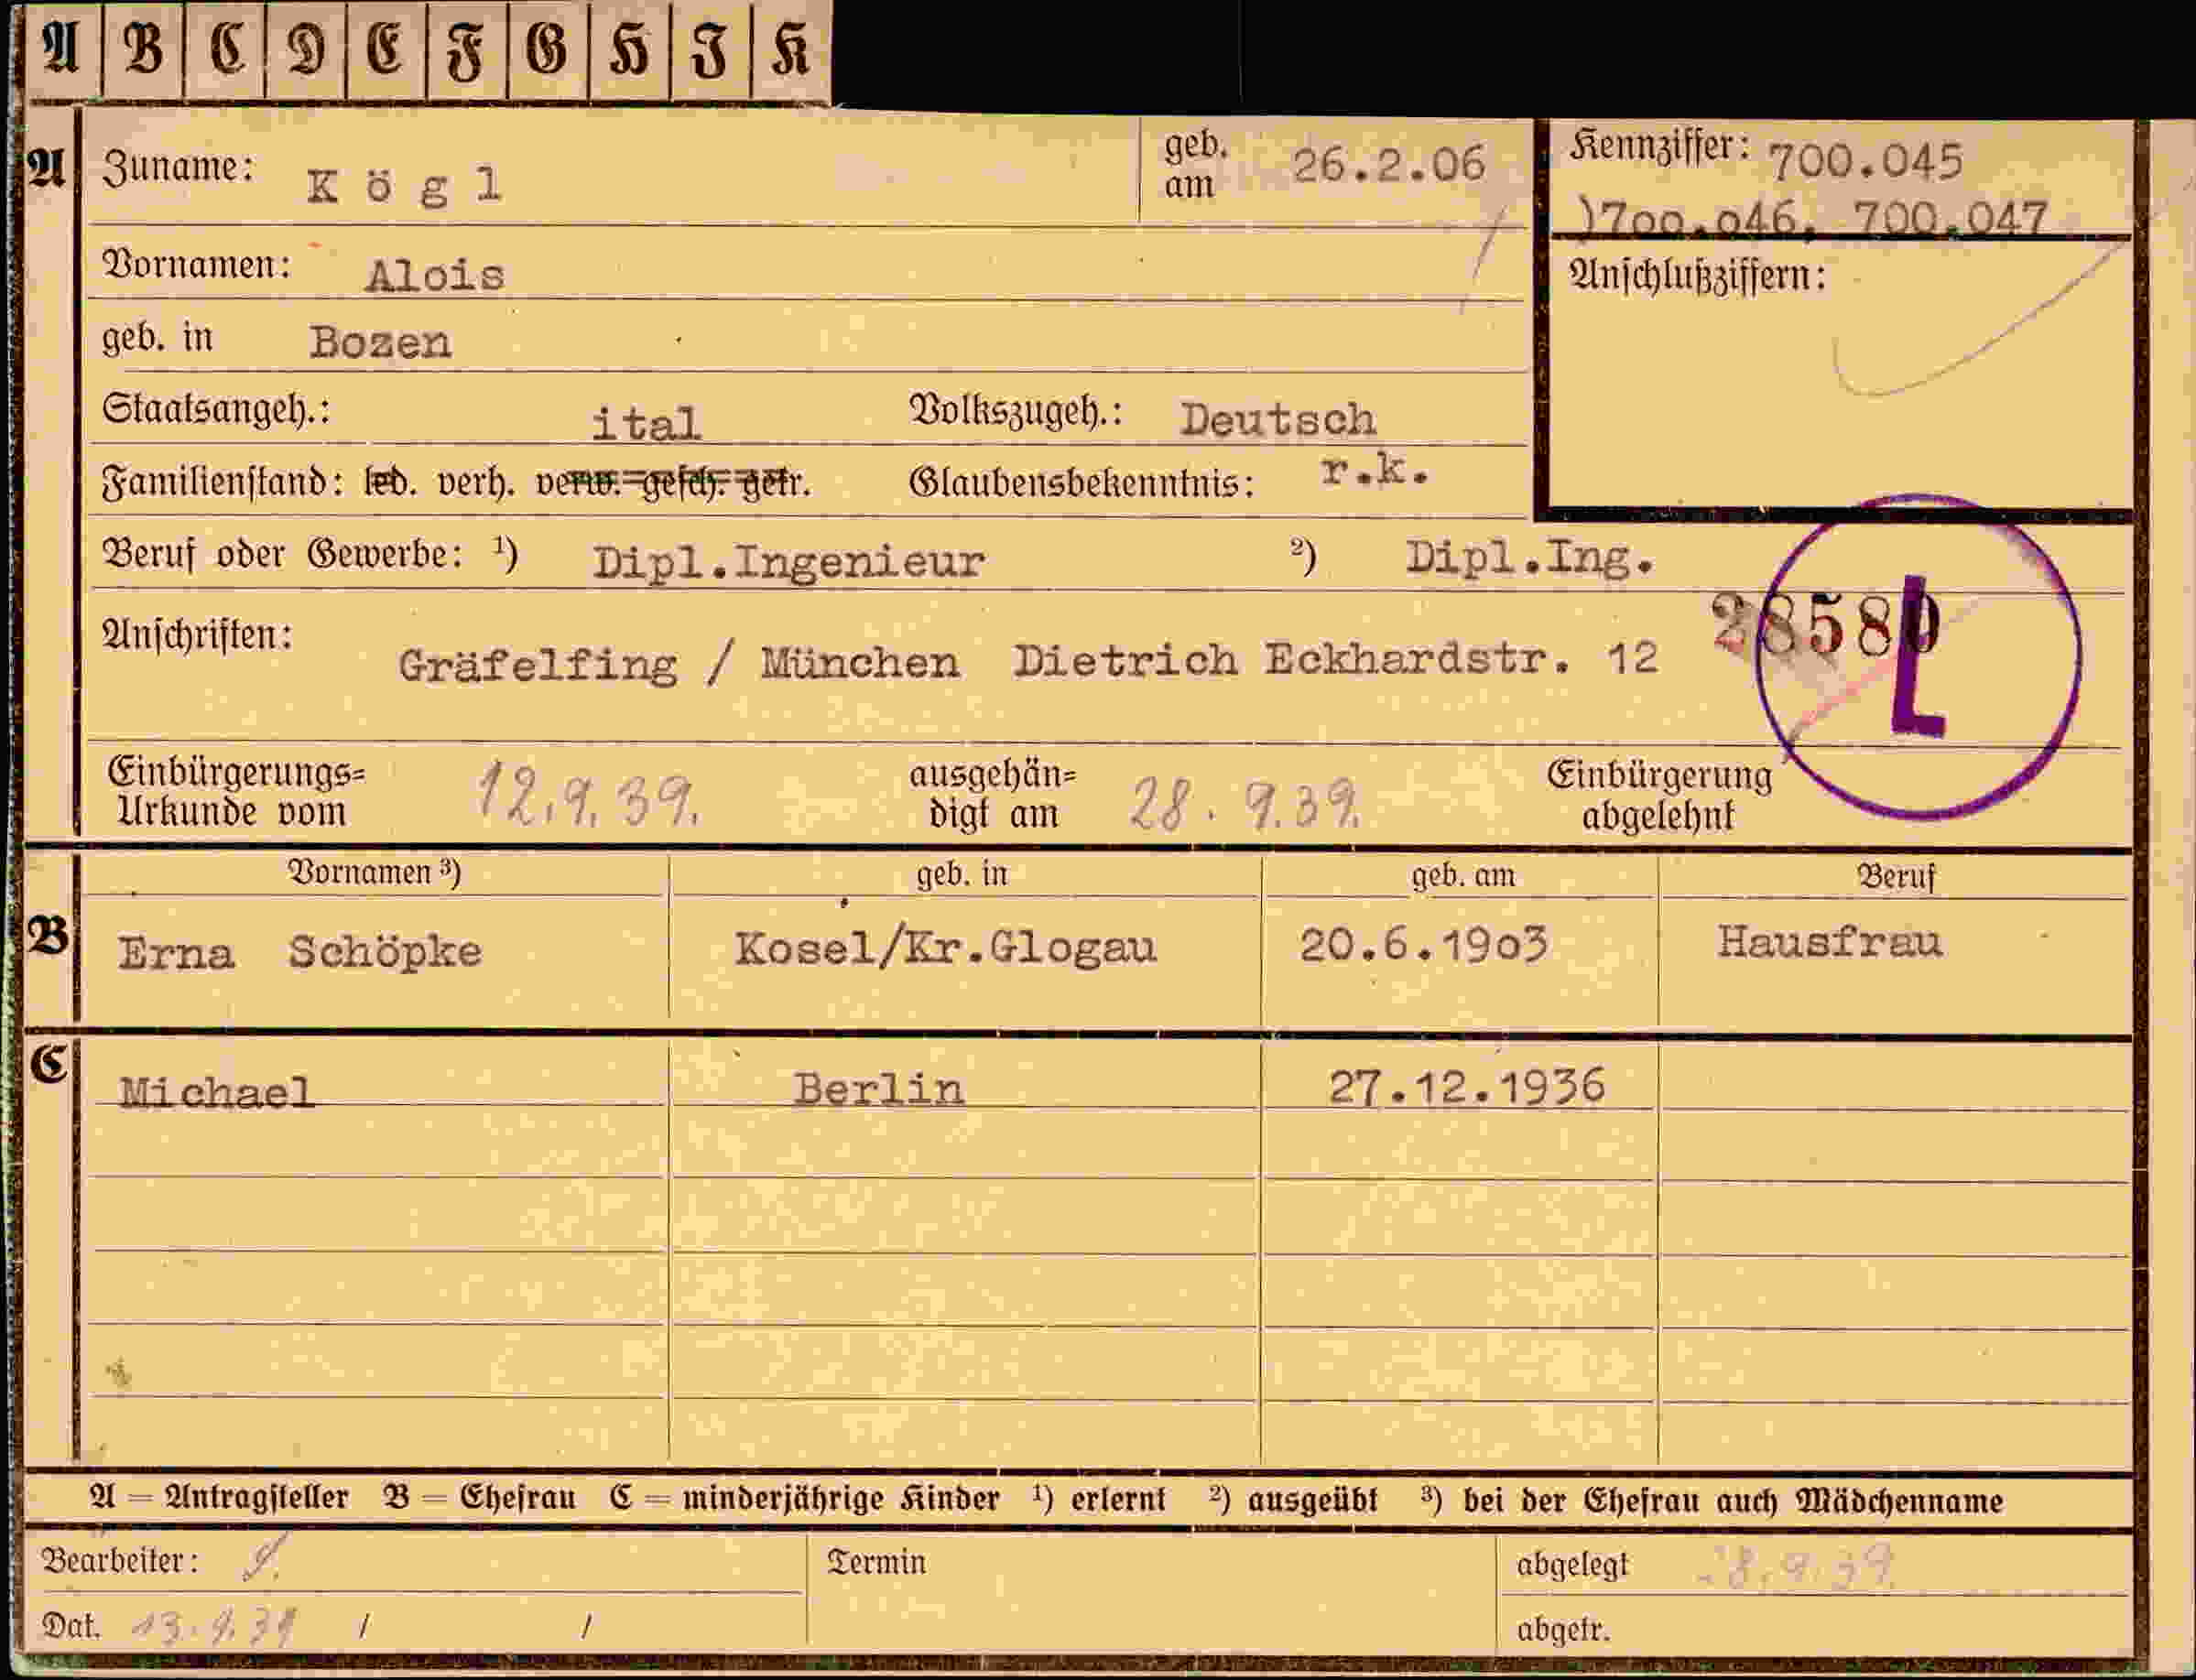 A B C D E F G H I K
A Zuname: K ö g l geb. am 26.2.06 Kennziffer: 700.045
)700.046, 700.047
Vornamen: Alois Anschlußziffern:
geb. in Bozen
Staatsangeh.: ital Volkszugeh.: Deutsch
Familienstand: led. verh. verw. gesch. getr. Glaubensbekenntnis: r.k.
Beruf oder Gewerbe: ¹) Dipl.Ingenieur ²) Dipl.Ing.
28580 L
Anschriften: Gräfelfing / München Dietrich Eckhardstr. 12
Einbürgerungs= ausgehän= Einbürgerung
Urkunde vom 12.9.39. digt am 28.9.39. abgelehnt
Vornamen ³) geb. in geb. am Beruf
B Erna Schöpke Kosel/Kr.Glogau 20.6.19o3 Hausfrau
C Michael Berlin 27.12.1936
A = Antragsteller B = Ehefrau C = minderjährige Kinder ¹) erlernt ²) ausgeübt ³) bei der Ehefrau auch Mädchenname
Bearbeiter: Termin abgelegt 28.9.39
Dat. 13.9.39 / / abgetr.